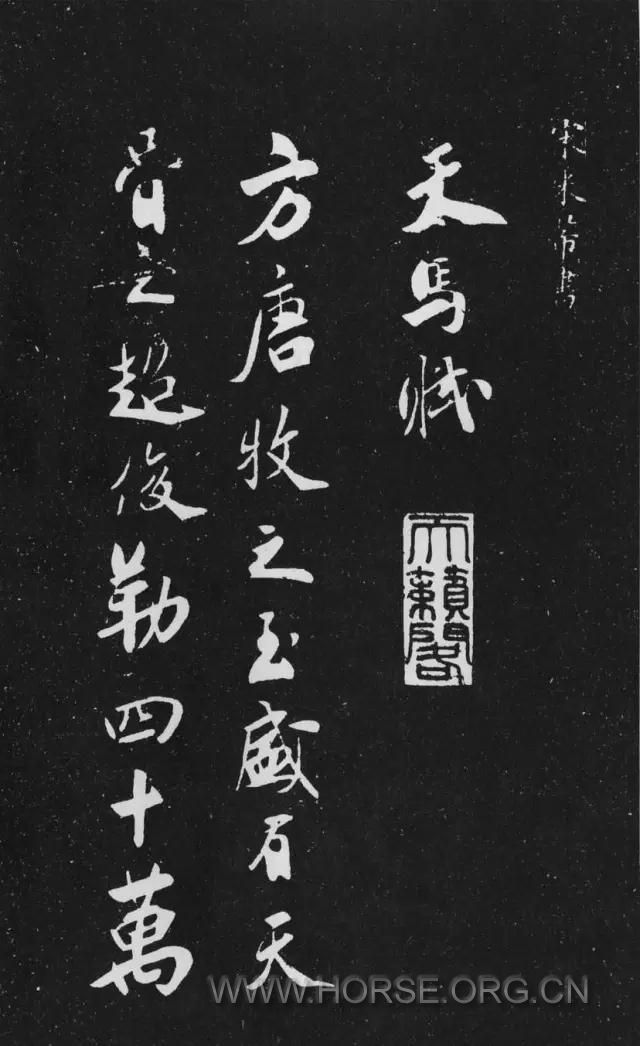 宋米芾書
天馬賦
天籟閣
方唐牧之至盛有天
骨之超俊勒四十萬
WWW.HORSE.ORG.CN